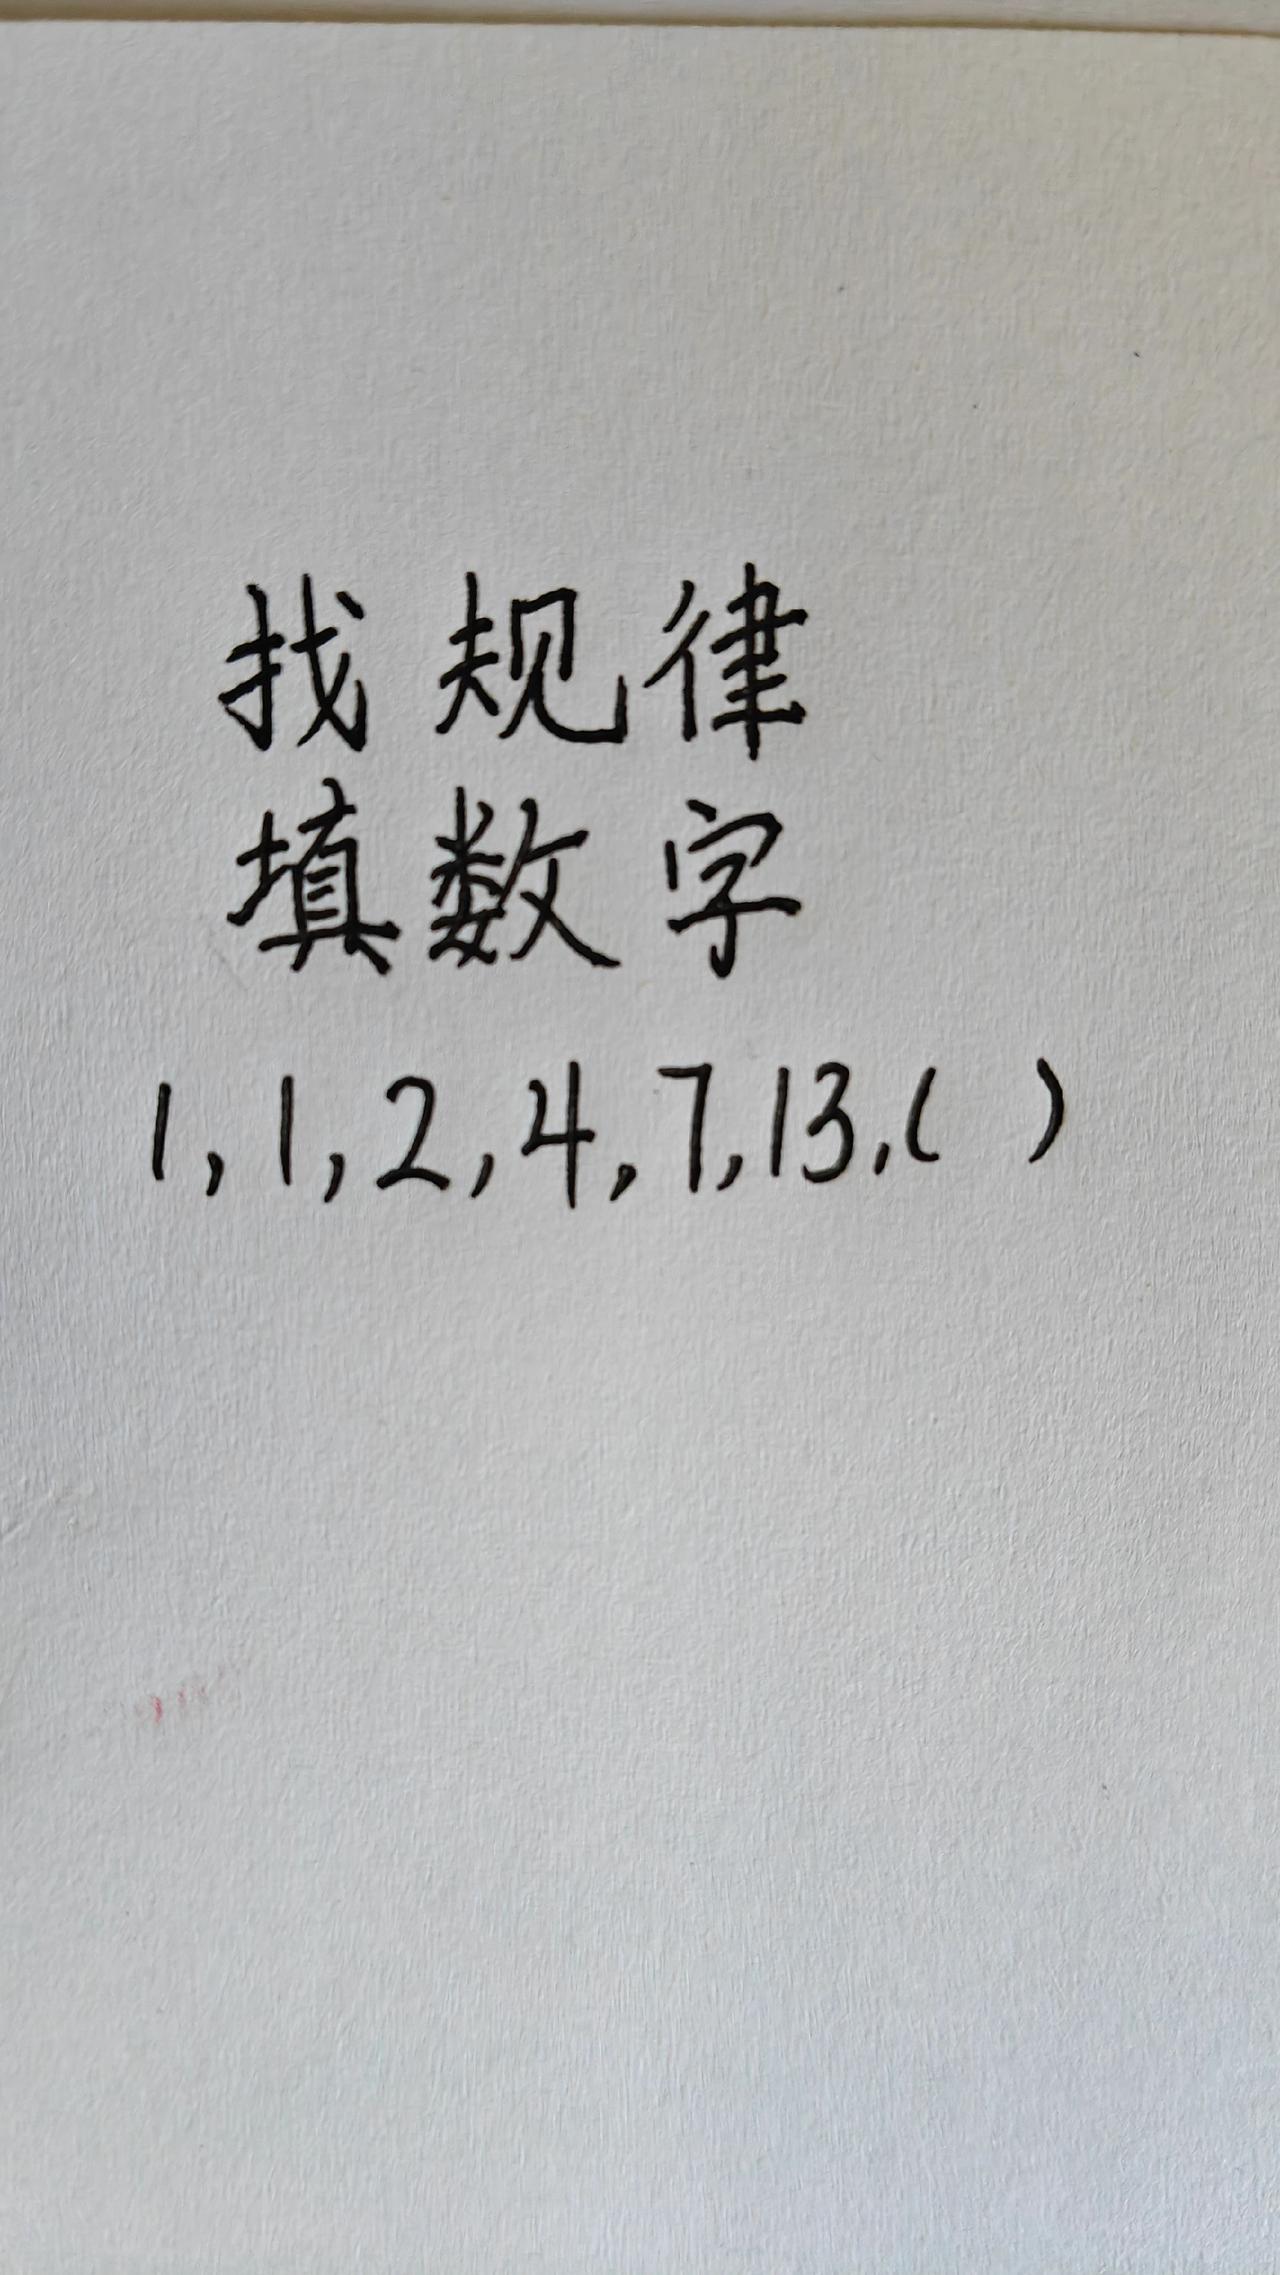 找规律
填数字
1,1,2,4,7,13,( )